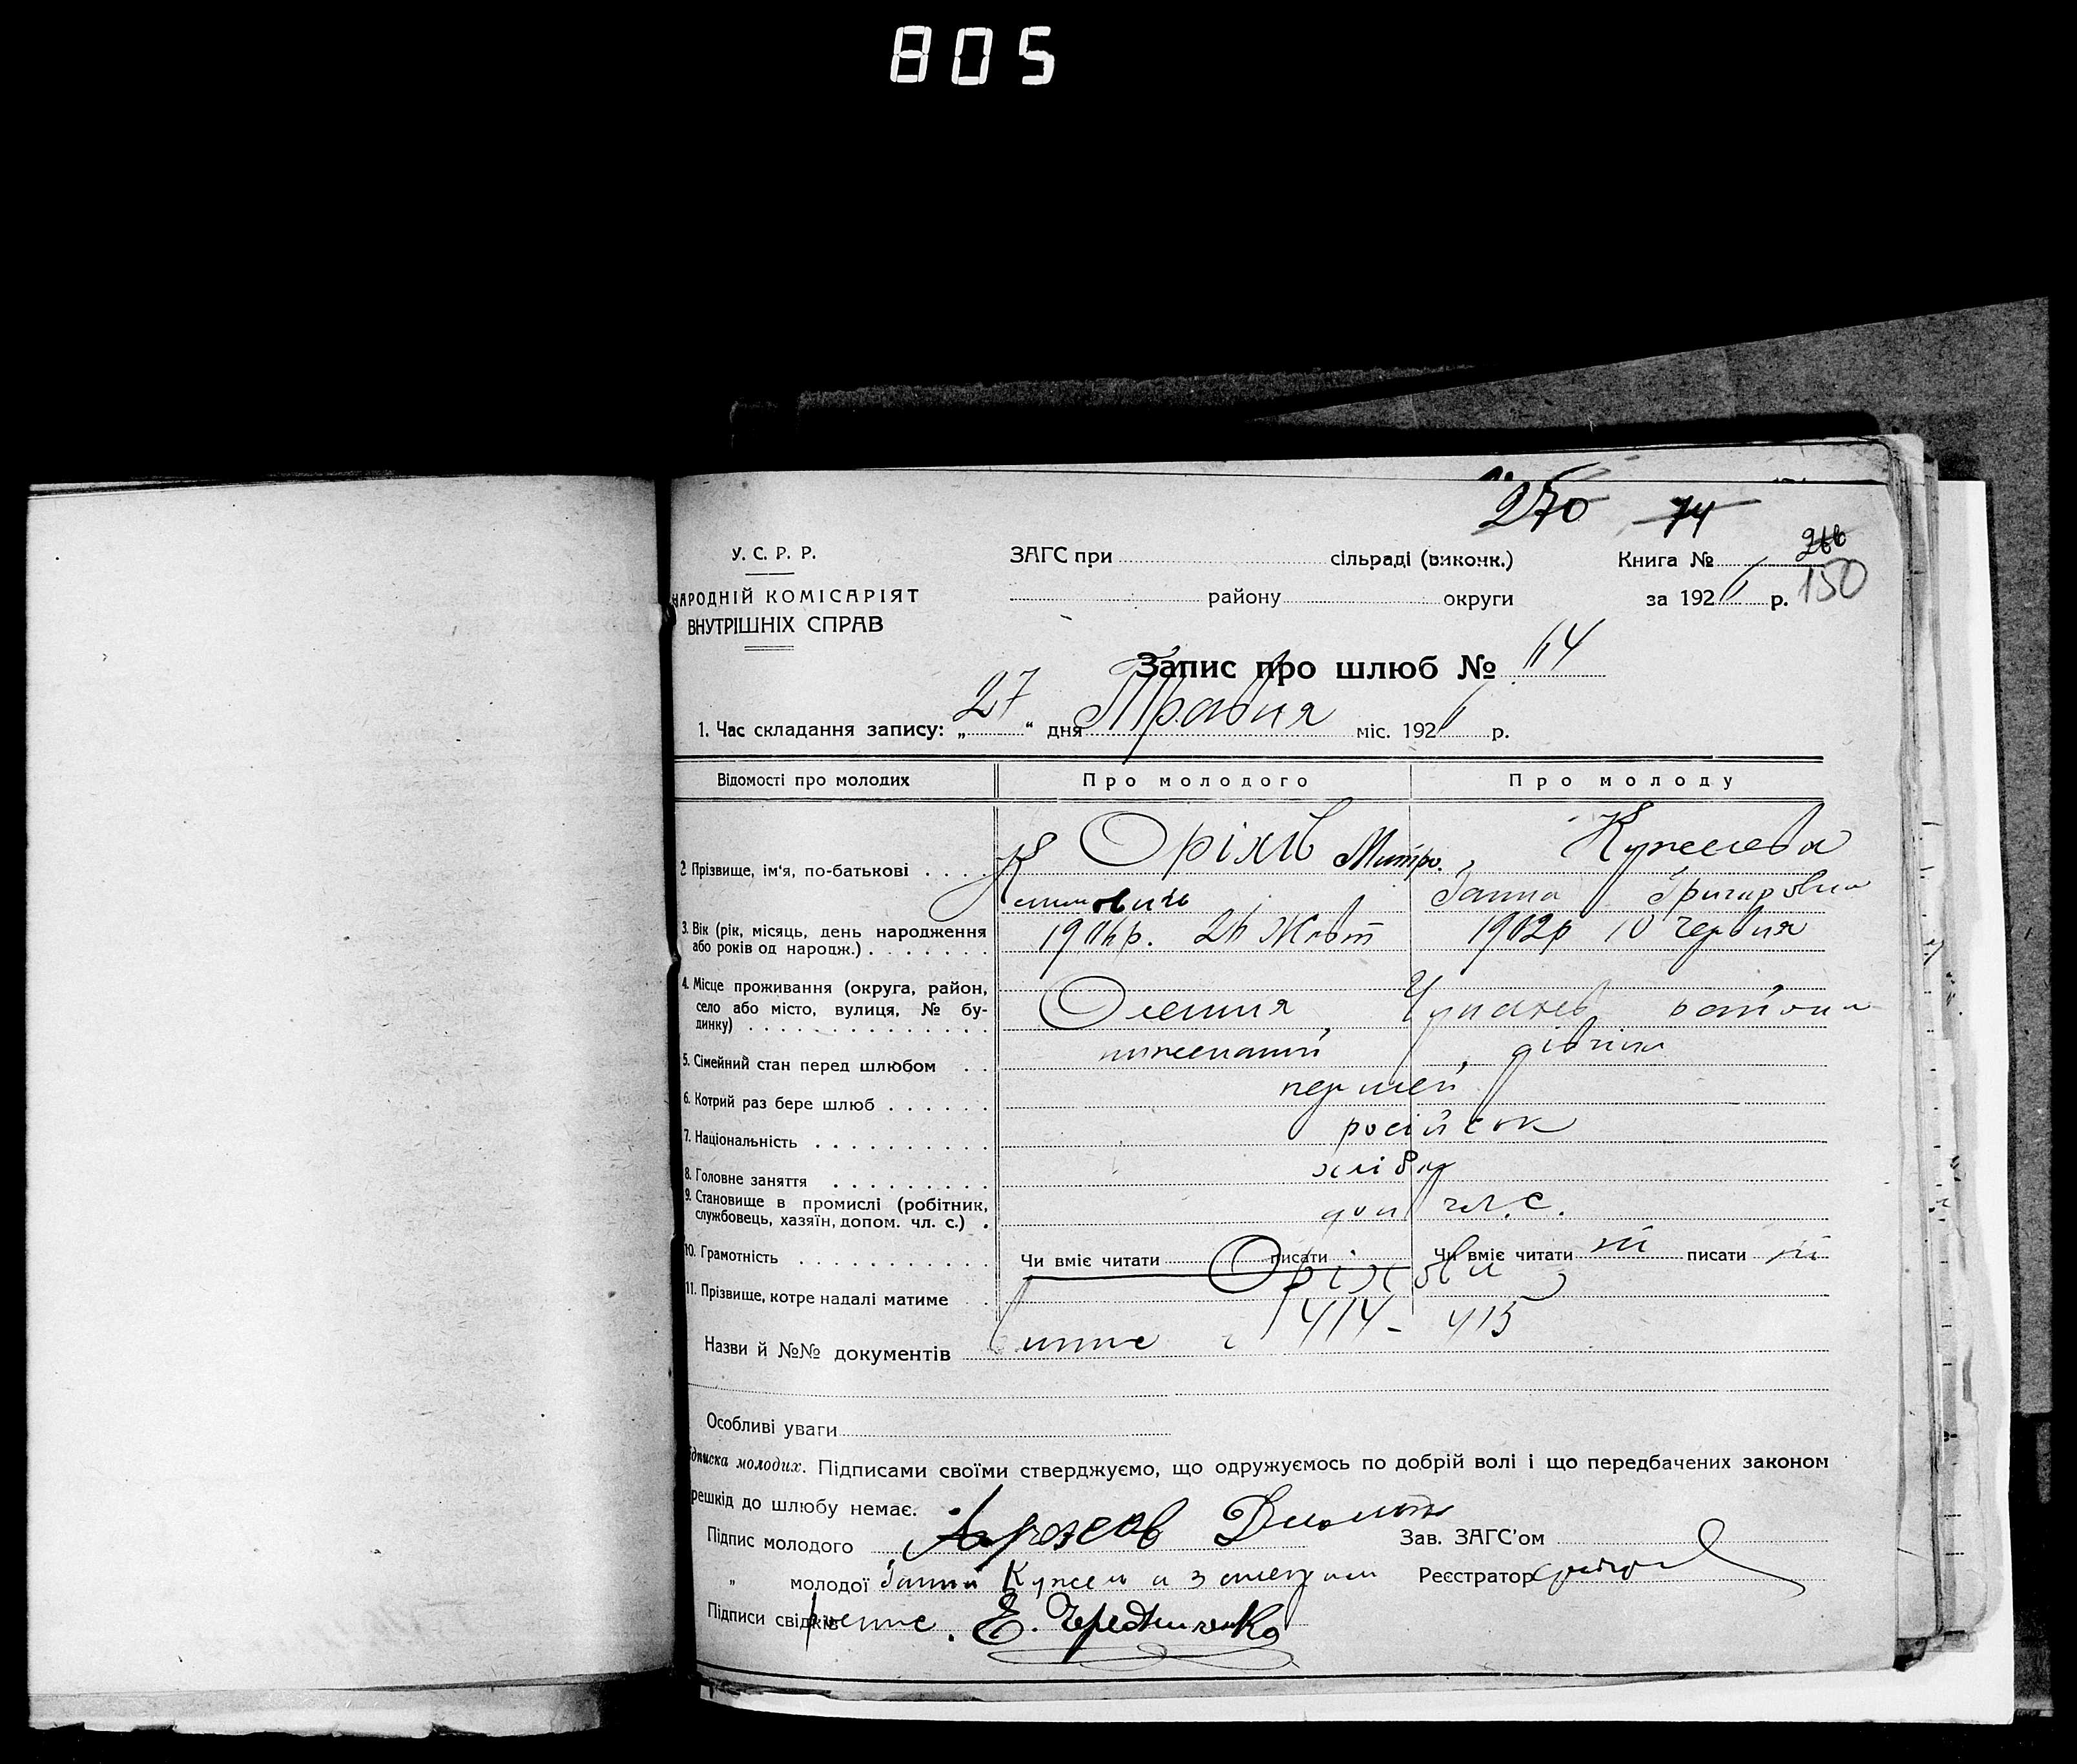 805
270 74
У. С. Р. Р.
ЗАГС при сільраді (виконк.) Книга №
150
НАРОДНІЙ КОМІСАРІЯТ
ВНУТРІШНІХ СПРАВ
району округи за 192 р.
Запис про шлюб № 114
1. Час складання запису: „27“ дня Травня міс. 192 р.
Відомості про молодих Про молодого Про молоду
2. Прізвище, ім'я, по-батькові Оріхів Митро Кужелева
Ганна Григоровна
3. Вік (рік, місяць, день народження
або років од народж.) 1906р. 26 Жовт 1902р 10 Червня
4. Місце проживання (округа, район,
село або місто, вулиця, № бу-
динку) Олешня, Чупахів району
5. Сімейний стан перед шлюбом нижонатий, дівчина
6. Котрий раз бере шлюб перший
7. Національність російськ
8. Головне заняття хлібор
9. Становище в промислі (робітник,
службовець, хазяїн, допом. чл. с.) доп чл. с.
10. Грамотність Чи вміє читати писати Чи вміє читати ні писати ні
11. Прізвище, котре надалі матиме Оріхови
Назви й №№ документів 414 - 415
Особливі уваги
ідписка молодих. Підписами своїми стверджуємо, що одружуємось по добрій волі і що передбачених законом
решкід до шлюбу немає.
Підпис молодого Зав. ЗАГС'ом
„ молодої Ганна Реєстратор
Підписи свідків Е. Чередниченко